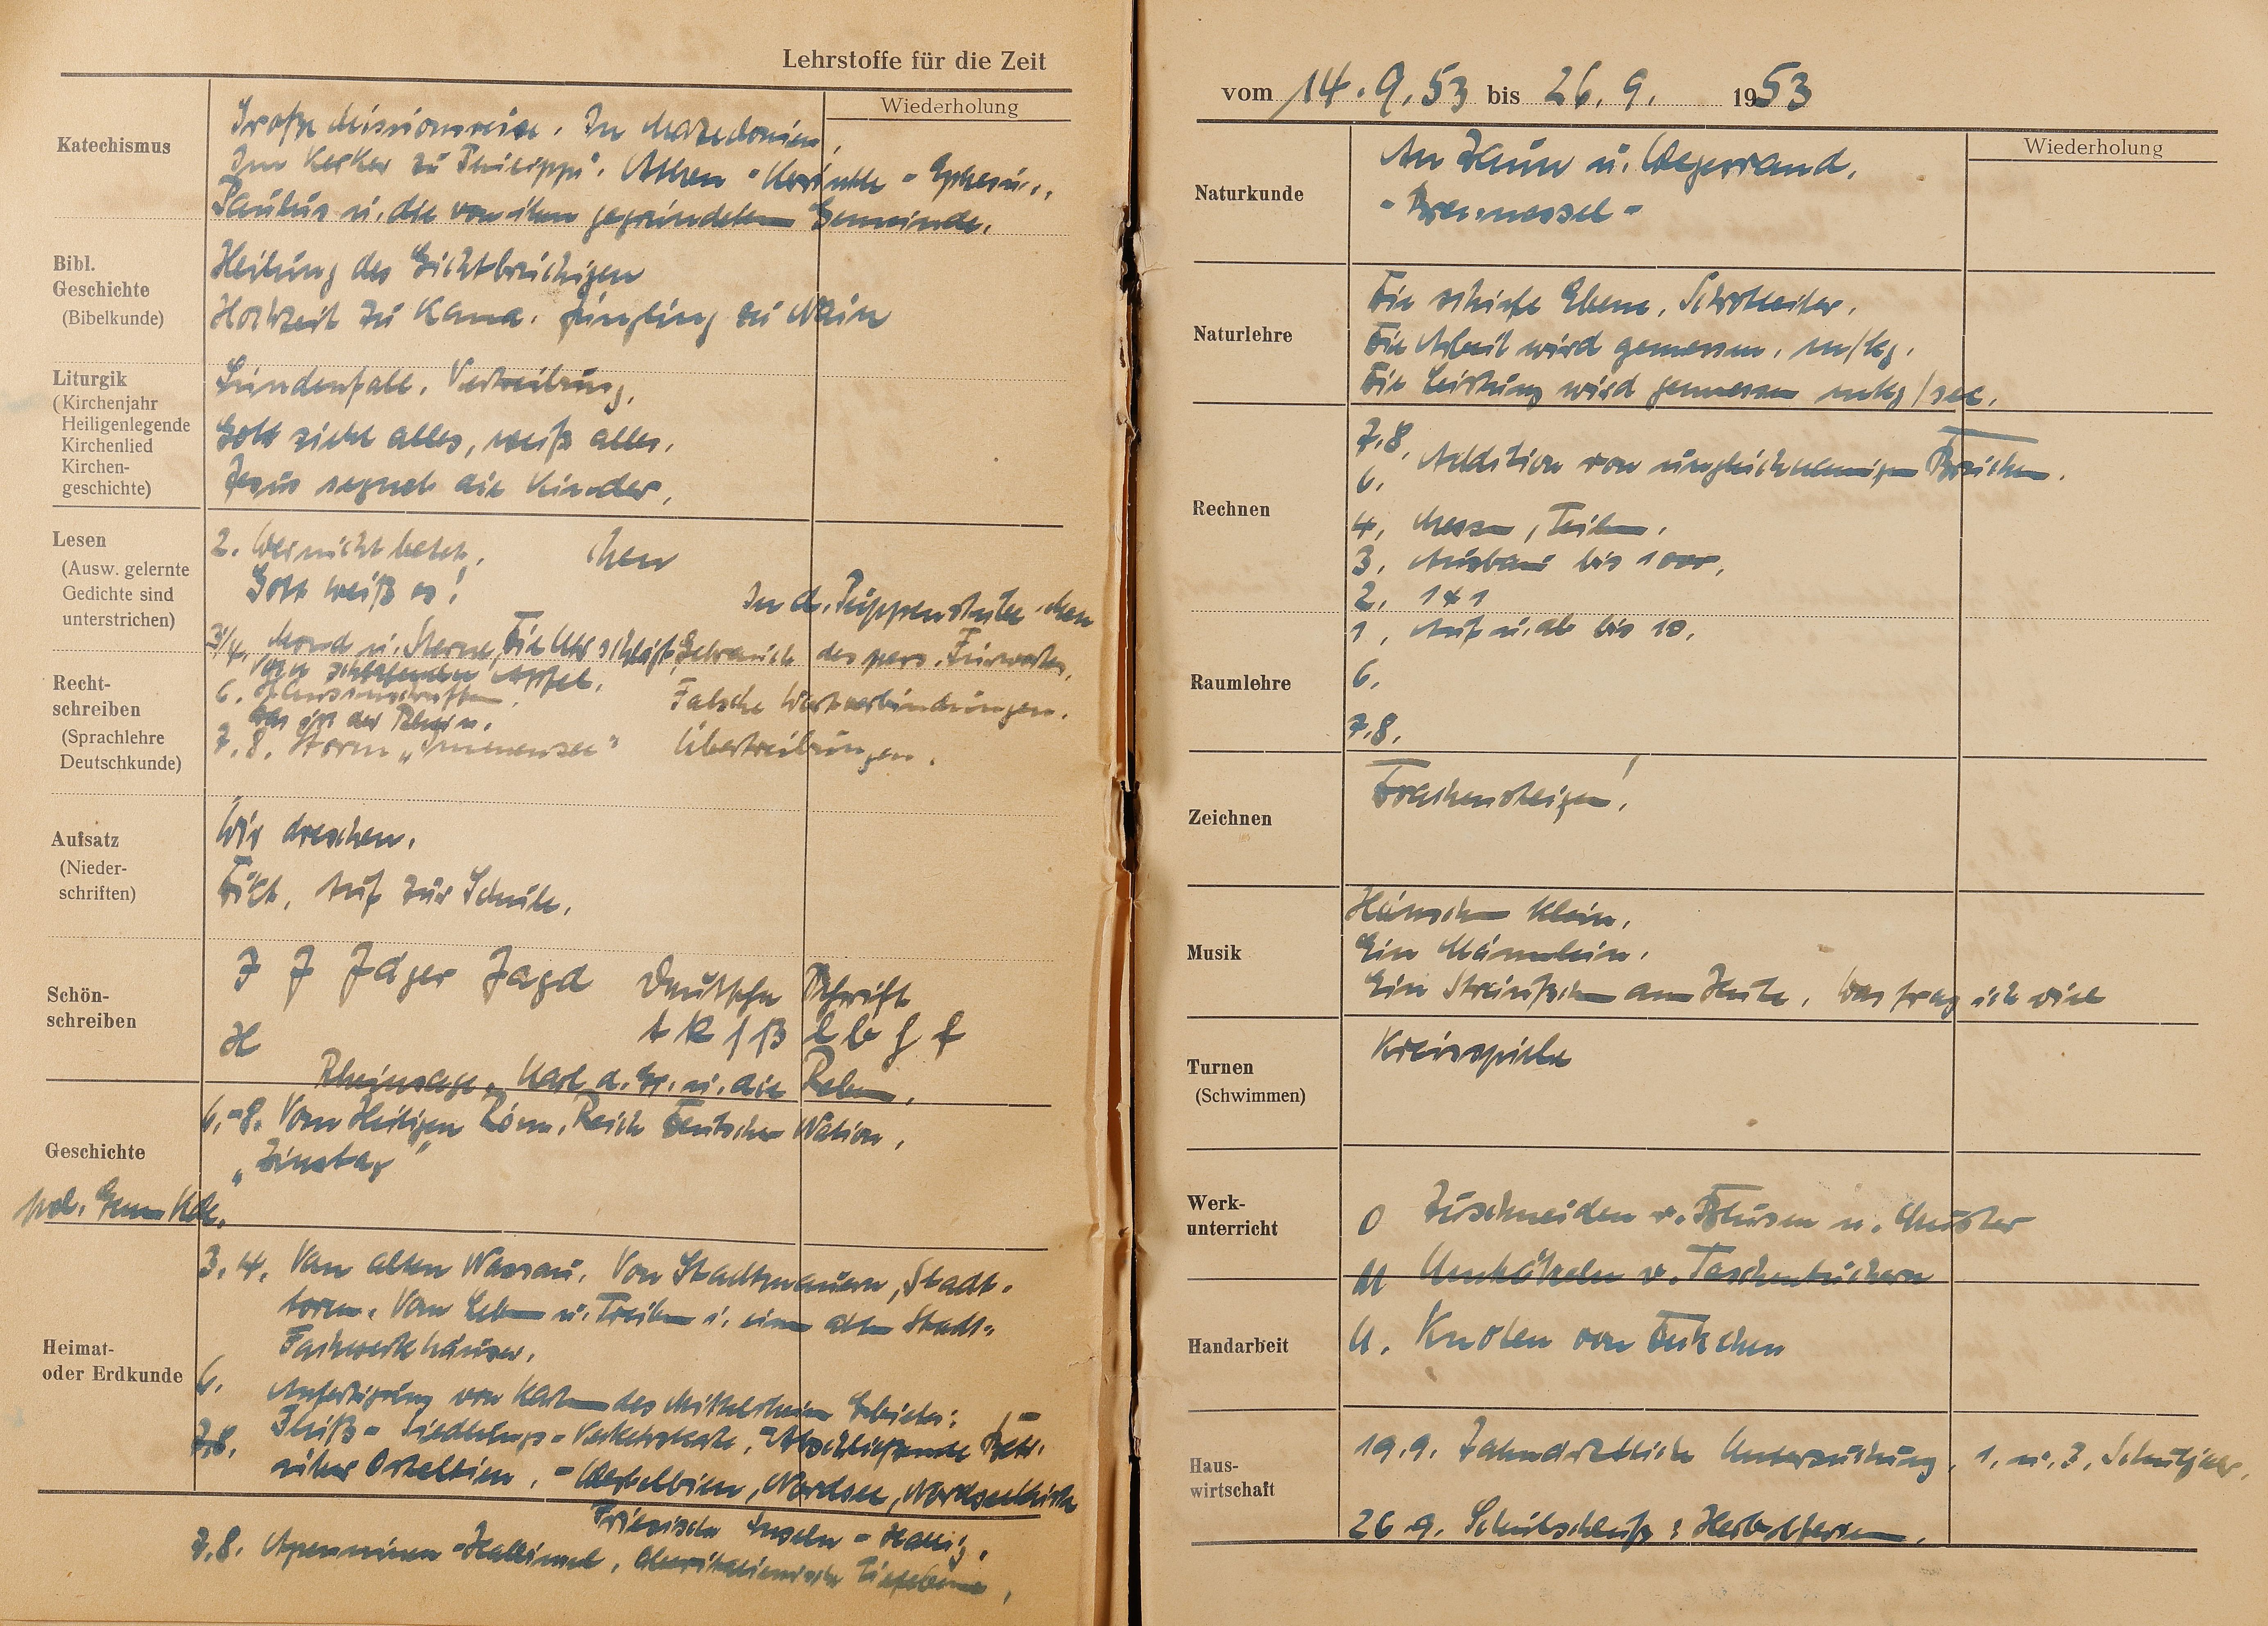 Lehrstoffe für die Zeit
Wiederholung
Katechismus
Große Missionsreise. In Mazedonien,
Im Kerker zu Philippi. Athen - Korinth - Ephesus.
Paulus u. die von ihm gegründeten Gemeinde.
Bibl.
Geschichte
(Bibelkunde)
Heilung des Gichtbrüchigen
Hochzeit zu Kana. Jüngling zu Naim
Liturgik
(Kirchenjahr
Heiligenlegende
Kirchenlied
Kirchen-
geschichte)
Sündenfall. Vertreibung.
Gott sieht alles, weiß alles.
Jesus segnet die Kinder.
Lesen
(Ausw. gelernte
Gedichte sind
unterstrichen)
2. Wer nicht betet. chen
Gott weiß es!
In d. Puppenstube chen
3/4. Mond u. Sterne, Die Uhr schlägt Gebrauch des pers. Fürwortes.
Vom schlafenden Apfel.
Recht-
schreiben
(Sprachlehre
Deutschkunde)
6. Hausinschriften. Falsche Wortverbindungen.
Das ist der Rhein.
7.8. Storm „Immensee" Übertreibungen.
Aufsatz
(Nieder-
schriften)
Wir dreschen.
Dikt. Auf zur Schule.
Schön-
schreiben
J J Jäger Jagd Deutsche Schrift
H t k ſ ß l b h f
Rheinsage. Karl d. Gr. u. die Reben.
Geschichte
6.-8. Vom Heiligen Röm. Reich Deutscher Nation.
„Zinstag"
pol. Gem Kde.
Heimat-
oder Erdkunde
3. 4. Vom alten Nassau. Von Stadtmauern, Stadt-
toren. Vom Leben u. Treiben i. einer alten Stadt-
Fachwerkhäuser.
6. Anfertigung von Karten des Mittelrhein Gebietes:
Fluß- Siedlungs- Verkehrskarte. - Abschließende
7.8. über Ostelbien. - Westelbien, Nordsee, Nordseeküste
Friesische Inseln - Hallig.
7.8. Apenninen - Halbinsel, Oberitalienische Tiefebene,
vom 14. 9. 53 bis 26. 9. 1953
Wiederholung
Naturkunde
An Zaun u. Wegerrand.
- Brennessel -
Naturlehre
Die schiefe Ebene, Schrotleiter.
Die Arbeit wird gemessen. m/kg.
Die Leistung wird gemessen mkg/sec.
Rechnen
7.8.
6. Addition von ungleichnamigen Brüchen.
4. Messen, Teilen.
3. Ausbau bis 1000.
2. 1 x 1
1. Auf u. ab bis 10.
Raumlehre
6.
7.8.
Zeichnen
Drachensteigen!
Musik
Hänschen klein.
Ein Männlein.
Ein Sträußchen am Hute. Was frag ich viel
Turnen
(Schwimmen)
Kreisspiele
Werk-
unterricht
O Zuschneiden v. Blusen n. Muster
M Umhäkeln v. Taschentüchern
Handarbeit
U. Knoten von Deckchen
Haus-
wirtschaft
19.9. Zahnärztliche Untersuchung. 1. u. 3. Schuljahr.
26.9. Schulschluß: Herbstferien.